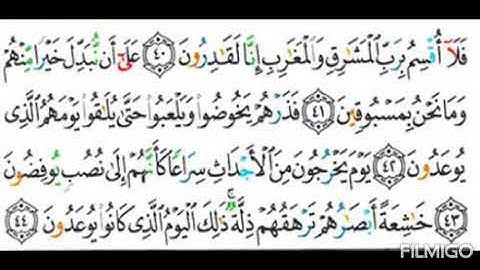 فَلَآ أُقۡسِمُ بِرَبِّ ٱلۡمَشَٰرِقِ وَٱلۡمَغَٰرِبِ إِنَّا لَقَٰدِرُونَ ٤٠ عَلَىٰٓ أَن نُّبَدِّلَ خَيۡرٗا مِّنۡهُمۡ
وَمَا نَحۡنُ بِمَسۡبُوقِينَ ٤١ فَذَرۡهُمۡ يَخُوضُواْ وَيَلۡعَبُواْ حَتَّىٰ يُلَٰقُواْ يَوۡمَهُمُ ٱلَّذِي
يُوعَدُونَ ٤٢ يَوۡمَ يَخۡرُجُونَ مِنَ ٱلۡأَجۡدَاثِ سِرَاعٗا كَأَنَّهُمۡ إِلَىٰ نُصُبٖ يُوفِضُونَ
٤٣ خَٰشِعَةً أَبۡصَٰرُهُمۡ تَرۡهَقُهُمۡ ذِلَّةٞۚ ذَٰلِكَ ٱلۡيَوۡمُ ٱلَّذِي كَانُواْ يُوعَدُونَ ٤٤
FILMIGO